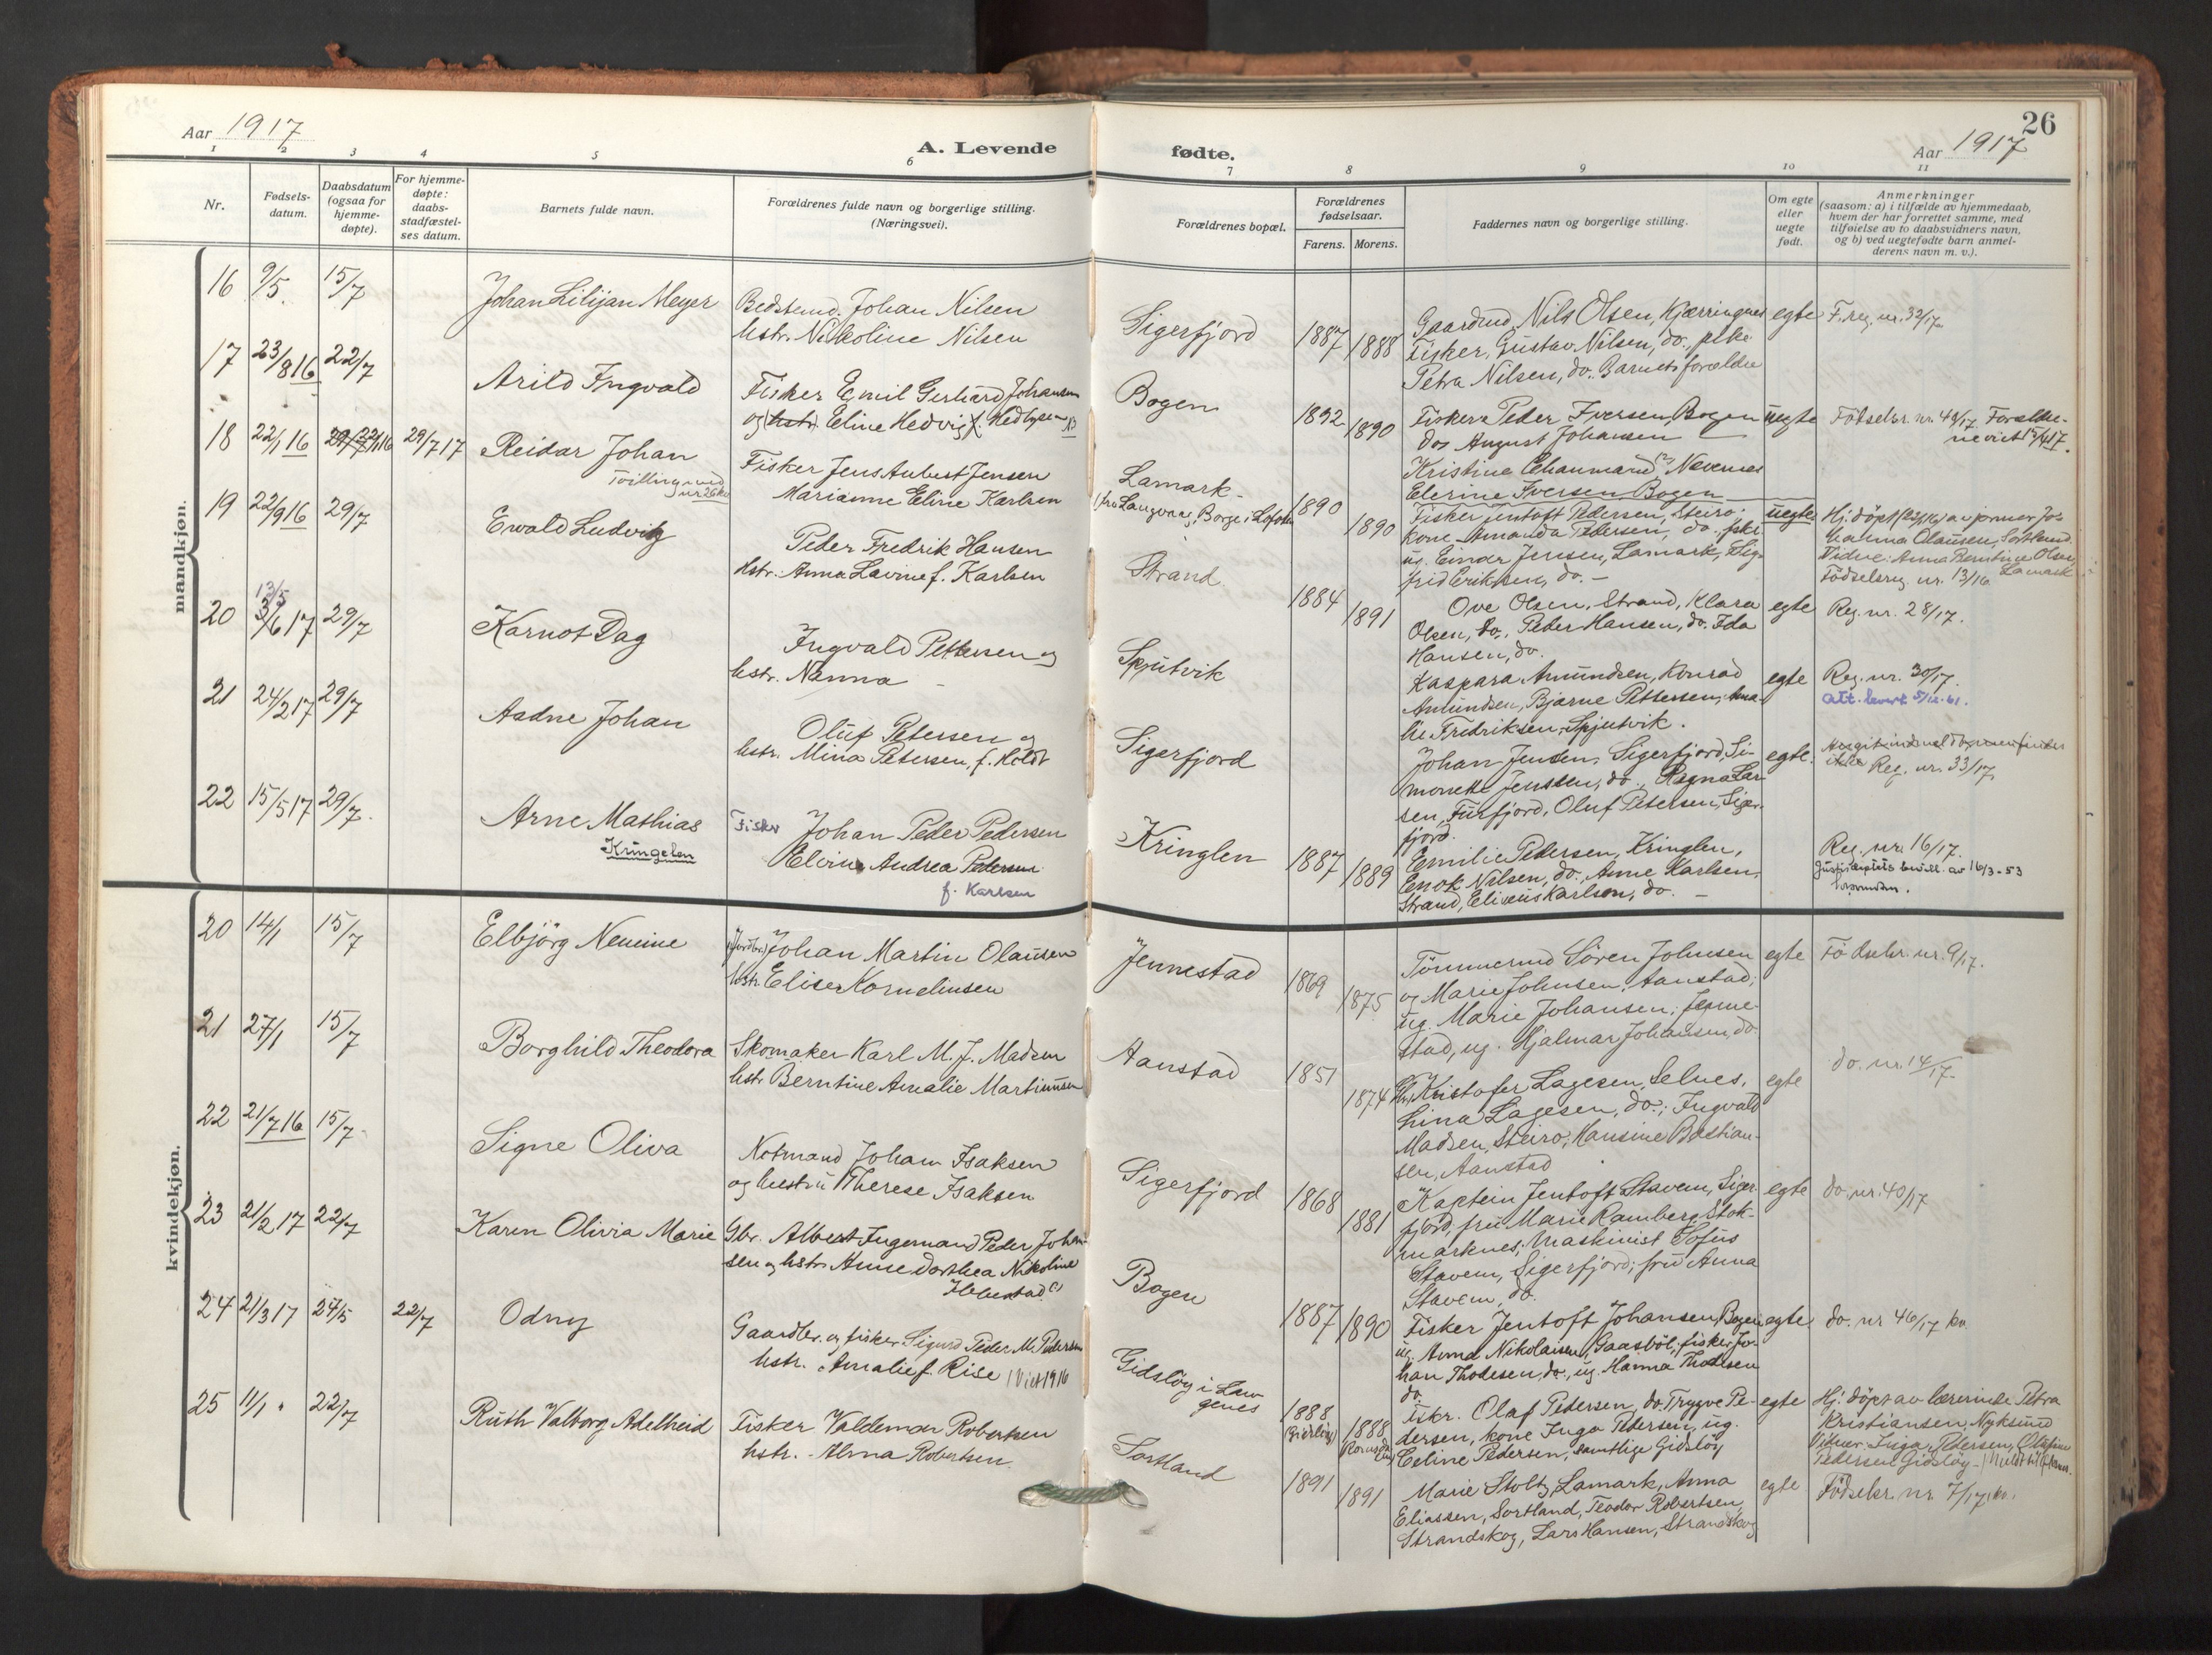 Aar 1917
A. Levende
1 2 3 4 5 6
Nr.
Fødsels-
datum.
Daabsdatum
(ogsaa for
hjemme-
døpte).
For hjemme-
døpte:
daabs-
stadfæstel-
ses datum.
Barnets fulde navn.
Forældrenes fulde navn og borgerlige stilling.
(Næringsvei).
mandkjøn.
16 9/5. 15/7 Johan Lilijan Meyer Bedstemd. Johan Nilsen
hstr. Nikoline Nilsen
17 23/8 16 22/7 Arild Ingvald Fisker Emil Gerhard Johansen
og (hstr) Eline Hedvig f. Hedlysen
18 22/1 16 29/7 17 Reidar Johan Fisker Jens Aubert Jensen
Tvilling med
Marianne Eline Karlsen
19 22/9 16 29/7 Ewald Ludvik Peder Fredrik Hansen
Hstr. Anna Lavine f. Karlsen
13/5
20 3/6 17 29/7 Karnot Dag Ingvald Pettersen og
hstr. Nanna
21 24/2 17 29/7 Asdne Johan Oluf Petersen og
hstr. Mina Petersen, f. Holdt
22 15/5 17 29/7. Arne Mathias Fisker Johan Peder Pedersen
Kringelen
Elvine Andrea Pedersen
f. Karlsen
kvindekjøn.
20 14/1 15/7 Elbjörg Nemine Johan Martin Olausen
hstr. Elise Kornelinsen
21 27/1 15/7 Borghild Theodora Skomaker Karl M. J. Madsen
hstr Berntine Amalie Martinusen
22 21/7 16 15/7 Signe Oliva Notmand Johan Isaksen
og hustru Therese Isaksen
23 21/2 17 22/7 Karen Olivia Marie Gbr. Albert Ingemand Peder Johan-
sen og hstr. Anne Dorthea Nikoline
24 21/3 17 27/5 22/7 Odny Gaardbr. og fisker Sigurd Peder M. Pedersen
hstr. Amalie f. Rise (Viet 1916
25 11/1 22/7 Ruth Valborg Adelheid Fisker Valdemar Robertsen
hstr. Alma Robertsen.
26
fødte.
Aar 1917
7 8 9 10 11
Forældrenes bopæl.
Forældrenes
fødselsaar.
Farens. Morens.
Faddernes navn og borgerlige stilling.
Om egte
eller
uegte
født.
Anmerkninger
(saasom: a) i tilfælde av hjemmedaab,
hvem der har forrettet samme, med
tilføielse av to daabsvidners navn,
og b) ved uegtefødte barn anmel-
derens navn m. v.).
Sigerfjord 1887 1888 Gaardmd Nils Olsen, Kjærringnes egte F. reg. nr. 32/17
Fisker, Gustav Nilsen, do., pike
Petra Nilsen, do. Barnets forældre
Bogen 1892 1890 Fisker Peder Iversen, Bogen uegte Födselsr. nr. 49/17 Forældre-
ne viet 15/4 17.
Dos August Johansen
Elerine Iversen Bogen
Lamark
(fra Langvaa, Borge i Lofoten 1890 1890 Fisker Jentoft Pedersen, Steiro; uegte
kone Amanda Pedersen, do., fskr
ug. Einar Jensen, Lamark, Sig-
frid Eriksen, do. –
Hj. döpt
Olausen, Sortland.
Vidne: Anna Berntine Olsen
Lamark
Födselsreg. nr. 13/16
Strand 1884 1891 Ove Olsen, Strand, Klara egte Reg. nr. 28/17.
Olsen, do., Peder Hansen, do. Ida
Hansen, do.
Spjutvik Kaspara Amundsen, Konrad egte Reg. nr. 30/17.
Amundsen, Bjarne Pettersen, Ama-
lie Fredriksen, Spjutvik.
Att. levert 5/12-61.
Sigerfjord Johan Jensen, Sigerfjord, Si- egte.
monette Jensen, do., Ragna Lar-
sen, Furfjord, Oluf Petersen, Siger-
fjord.
Reg. nr. 33/17
Kringlen 1887 1889 Emilie Pedersen, Kringlen,
Enok Nilsen, do., Anne Karlsen,
Strand, Eliseus Karlsen, do. –
Reg. nr. 16/17.
Justisdeptets bevill. av 16/3-53
Jennestad 1869 1875 Tömmermd Sören Johnsen egte Födselsr. nr. 9/17.
og Marie Johnsen, Aanstad;
ug. Marie Johansen, Jenne-
stad, ug. Hjalmar Johansen, do.
Aanstad 1851 1874 Gbr. Kristofer Lagesen, Selnes, egte do. nr. 14/17
Lina Lagesen, do.; Ingvald
Madsen, Steiro, Hansine Bastian-
sen, Aanstad
Sigerfjord 1868 1881 Kaptein Jentoft Stavem, Siger- egte do. nr. 40/17
fjord, fru Marie Ramberg, Stok-
marknes; Maskinist Tofus
Stavem, Sigerfjord; fru Anna
Stavem, do.
Bogen 1887 1890 Fisker Jentoft Johansen, Bogen egte do. nr 46/17 kv.
ug. Anna Nikolaisen, Gaasböl; fisker Jo-
han Thodesen, do., ug. Hanna Thodesen
do
Gidslöy i Lan-
genes 1888 (Gidslöy) 1888 Fiskr. Olaf Pedersen, do. Trygve Pe- egte
dersen, kone Inga Pedersen, ug.
Celine Pedersen, samtlige Gidslöy
Hj. döpt av lærerinde Petra
Kristiansen, Nyksund
Vidner: Inga Pedersen, Olufine
Pedersen Gidslöy.
Sortland 1891 1891 Marie Stoltz, Lamark, Anna egte Födselsr. nr. 7/17, kv.
Eliassen, Sortland, Teodor Robertsen,
Strandskog, Lars Hansen, Strandskog